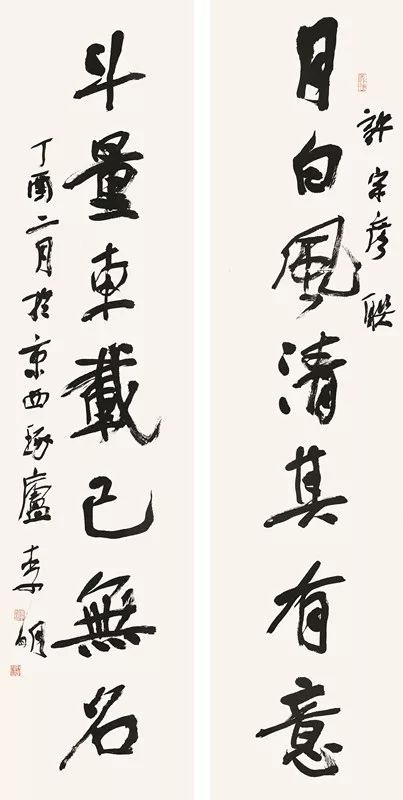 許宗彦联
月白風清其有意
斗量車載已無名
丁酉二月於京西琢廬李明